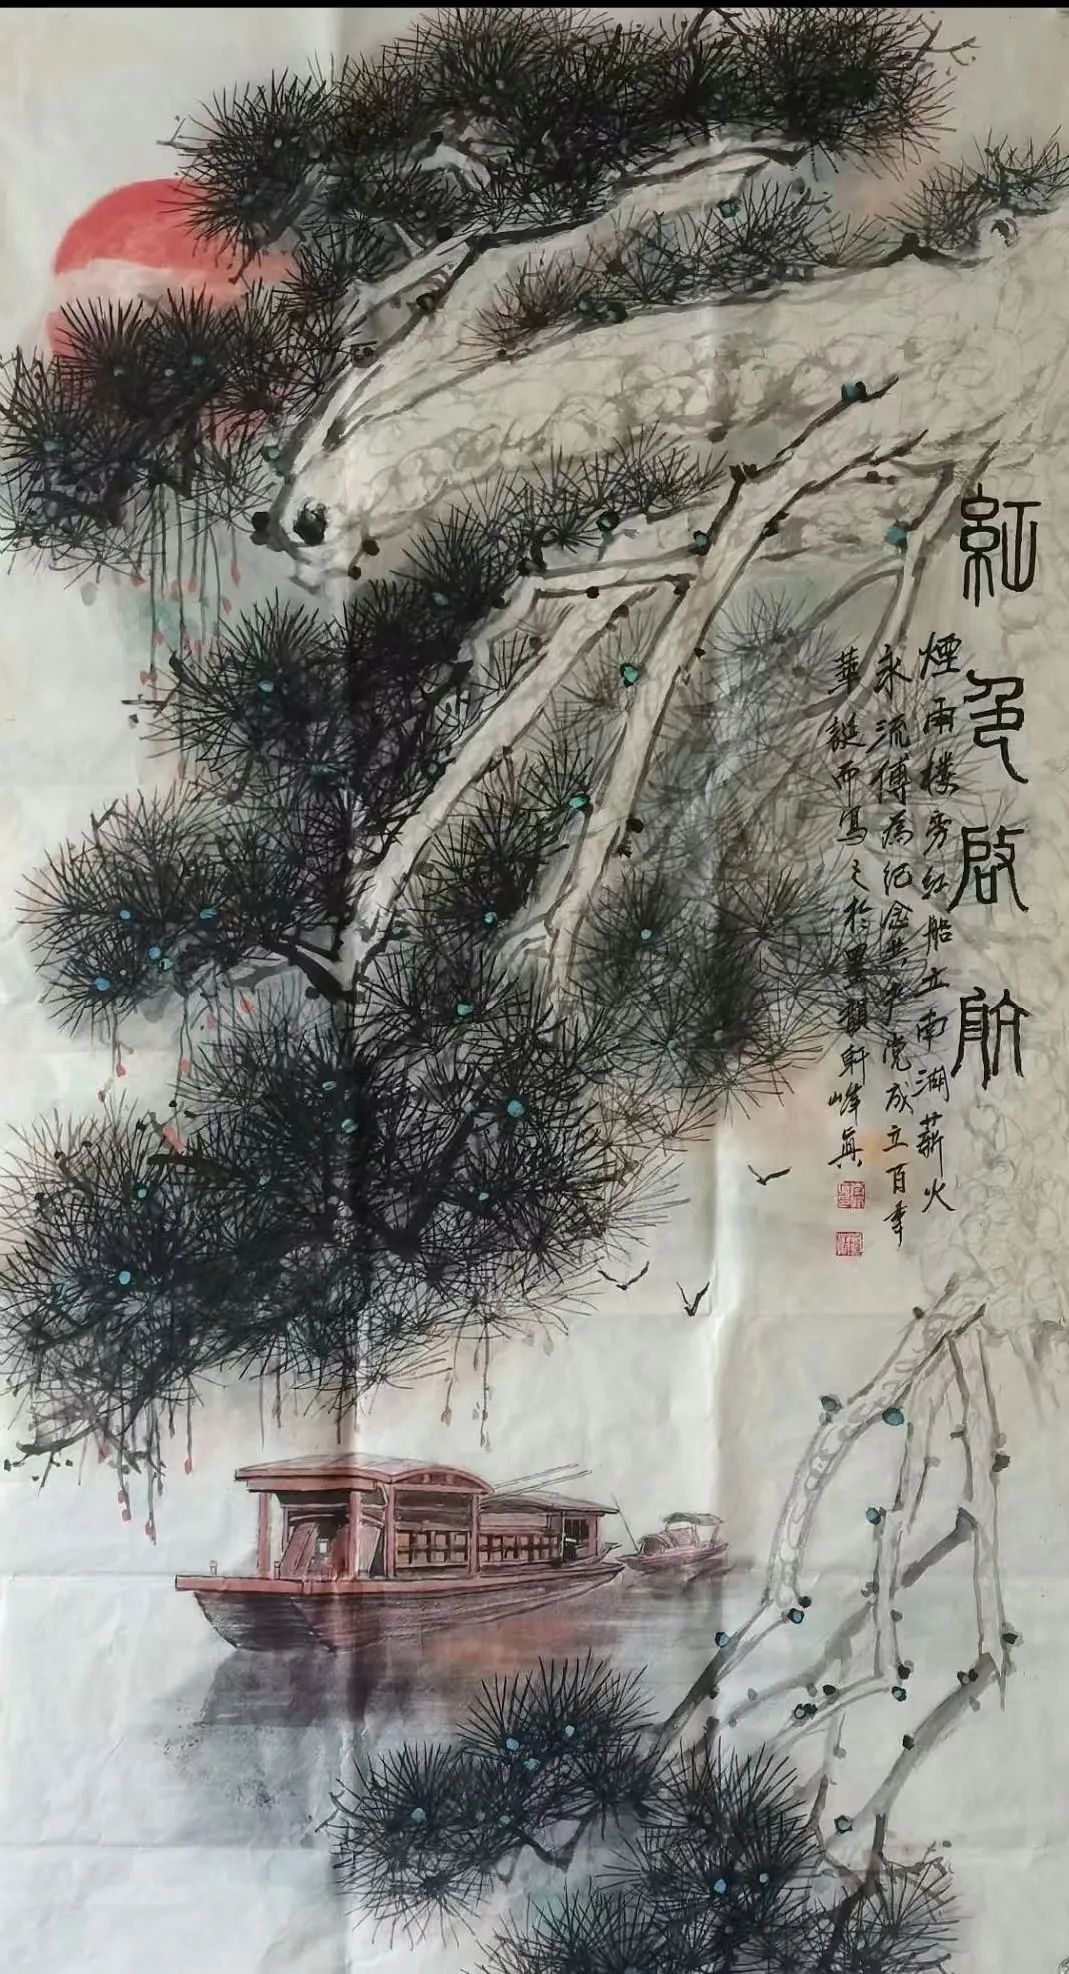 紅色啟航
煙雨樓旁红船立南湖薪火
永流傅為纪念共产党成立百年
華誕而寫之於墨韻軒峰真